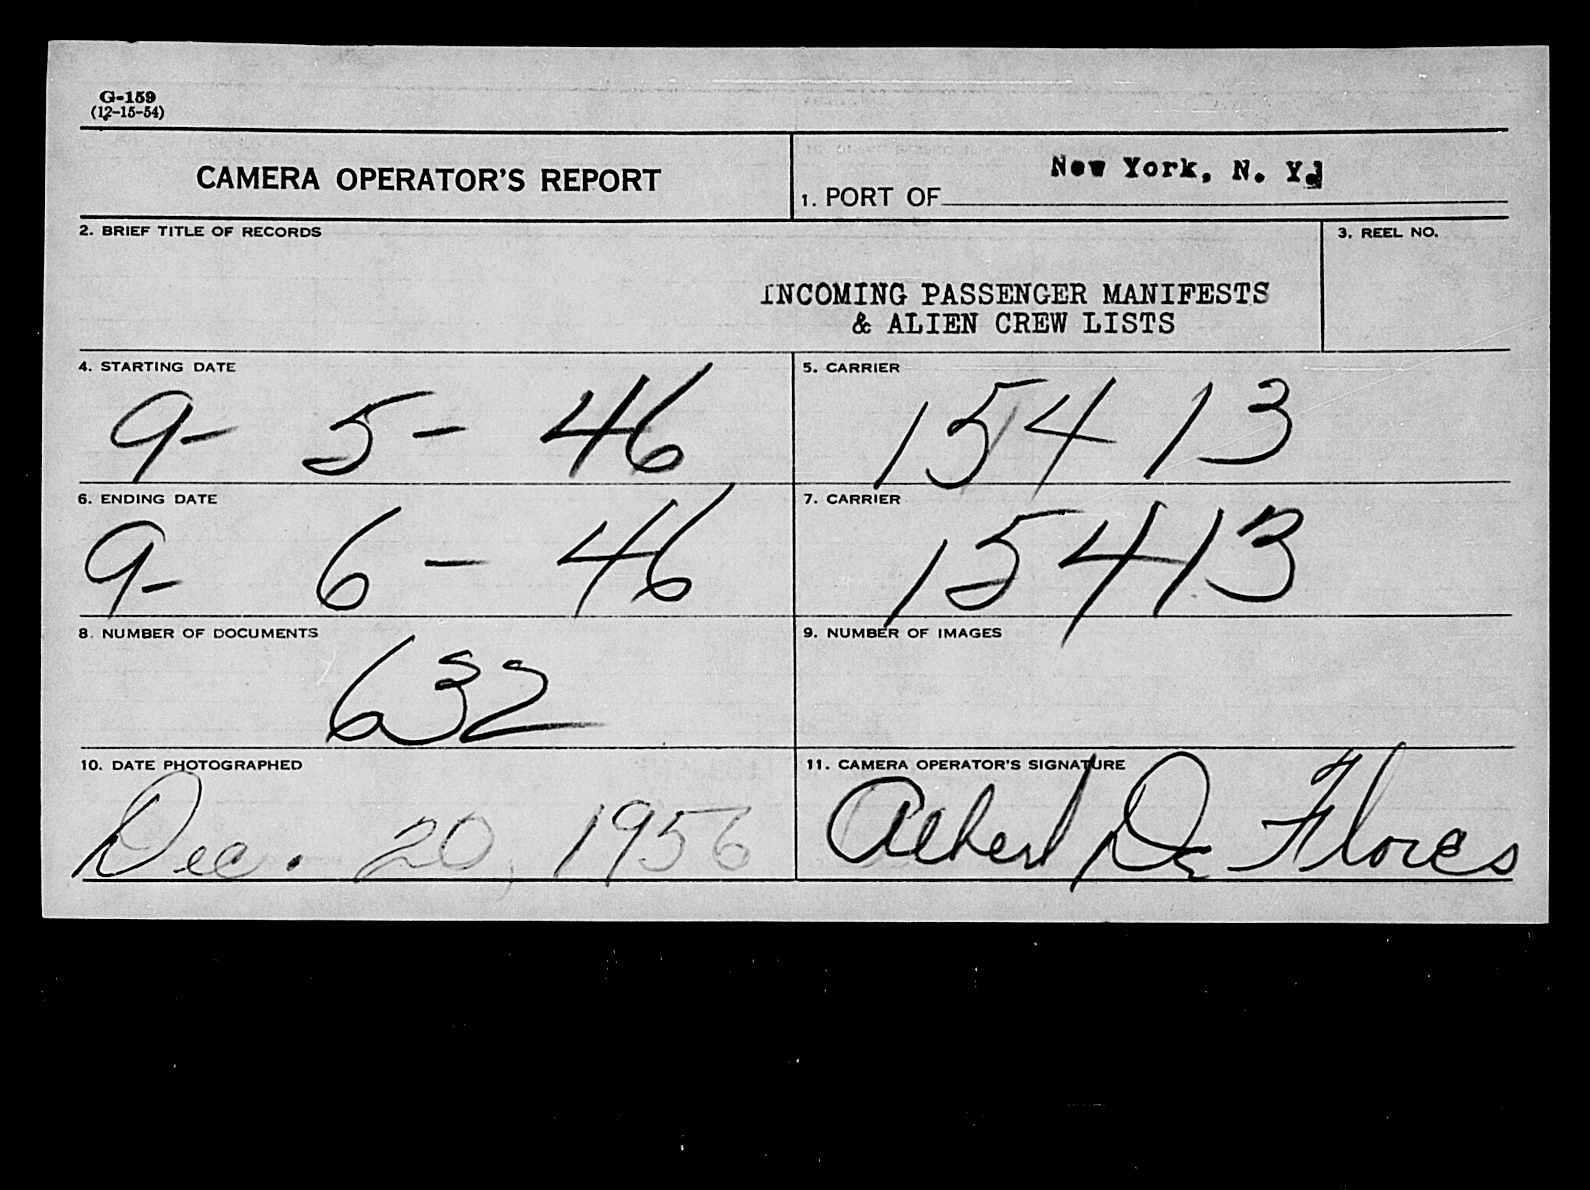 G-159
(12-15-54)
CAMERA OPERATOR'S REPORT
1. PORT OF New York, N. Y.
2. BRIEF TITLE OF RECORDS
3. REEL NO.
INCOMING PASSENGER MANIFESTS
& ALIEN CREW LISTS
4. STARTING DATE
9- 5- 46
5. CARRIER
15413
6. ENDING DATE
9- 6- 46
7. CARRIER
15413
8. NUMBER OF DOCUMENTS
632
9. NUMBER OF IMAGES
10. DATE PHOTOGRAPHED
Dec. 20, 1956
11. CAMERA OPERATOR'S SIGNATURE
Albert De Flores